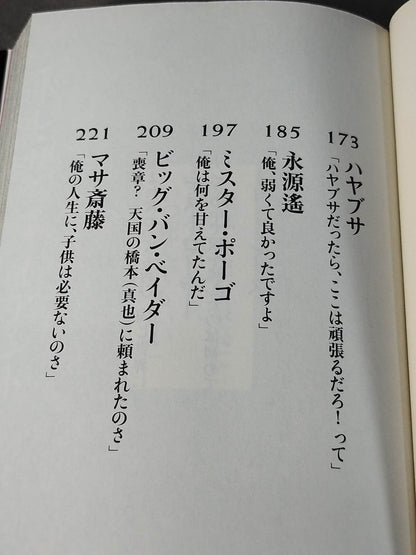 173
ハヤブサ
「ハヤブサだったら、ここは頑張るだろ！って」
185
永源遙
「俺、弱くて良かったですよ」
197
ミスター・ポーゴ
「俺は何を甘えてたんだ」
209
ビッグ・バン・ベイダー
「喪章？ 天国の橋本（真也）に頼まれたのさ」
221
マサ斎藤
「俺の人生に、子供は必要ないのさ」